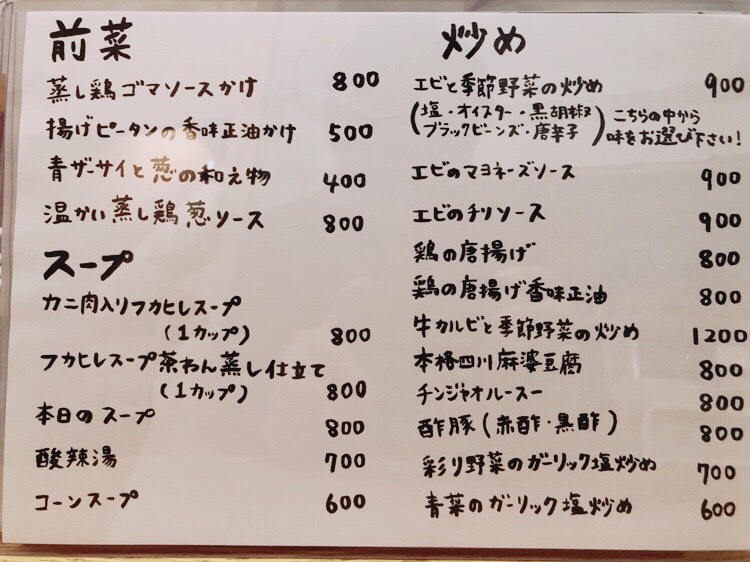 前菜
蒸し鶏ゴマソースかけ 800
揚げピータンの香味正油かけ 500
青ザーサイと葱の和え物 400
温かい蒸し鶏葱ソース 800
スープ
カニ肉入りフカヒレスープ
(1カップ) 800
フカヒレスープ茶わん蒸し仕立て
(1カップ) 800
本日のスープ 800
酸辣湯 700
コーンスープ 600
炒め
エビと季節野菜の炒め 900
(塩・オイスター・黒胡椒
ブラックビーンズ・唐辛子)
こちらの中から
味をお選び下さい!
エビのマヨネーズソース 900
エビのチリソース 900
鶏の唐揚げ 800
鶏の唐揚げ香味正油 800
牛カルビと季節野菜の炒め 1200
本格四川麻婆豆腐 800
チンジャオルースー 800
酢豚(赤酢・黒酢) 800
彩り野菜のガーリック塩炒め 700
青菜のガーリック塩炒め 600